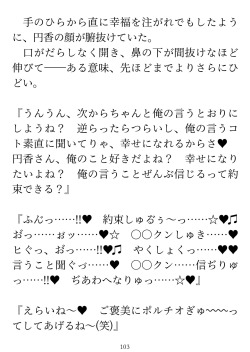 手のひらから直に幸福を注がれでもしたよう
に、円香の顔が腑抜けていた。
　口がだらしなく開き、鼻の下が間抜けなほど
伸びて――ある意味、先ほどまでよりさらにひ
どい。
『うんうん、次からちゃんと俺の言うとおりに
しようね？　逆らったらつらいし、俺の言うコ
ト素直に聞いてりゃ、幸せになれるからさ♥
円香さん、俺のこと好きだよね？　幸せになり
たいよね？　俺の言うことぜんぶ信じるって約
束できる？』
『ふんっ……!!♥　約束しゅるぅ〜っ……☆♥♫
おっ……ぉッ……♥☆　○○クンしゅき……♥
ヒぐっ、おっ……!!♥♫　やくしょくっ……♥♥
言うこと聞ぐっ……♥　○○クン……信ぢりゅ
っ……!!♥　ぢあわへなりゅっ……☆♥』
『えらいね〜♥　ご褒美にポルチオぎゅ〜〜っ
てしてあげるね〜(笑)』
103